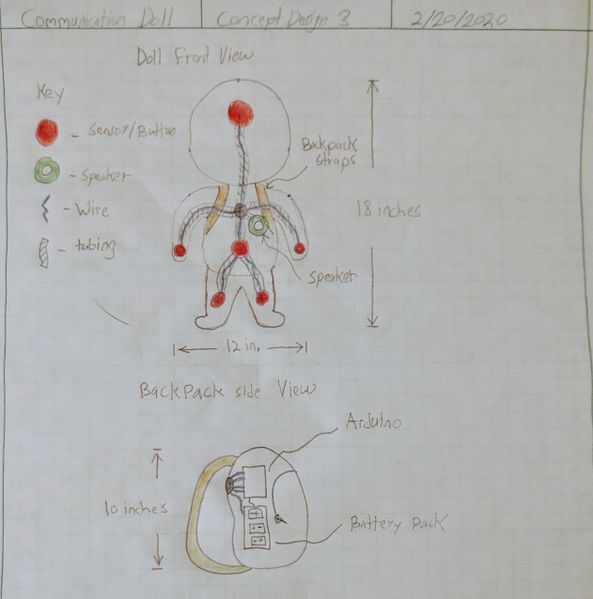 Communication Doll
Concept Design 3
2/20/2020
Doll Front View
Key
- Sensor/Button
- Speaker
- Wire
- tubing
Backpack
straps
18 inches
Speaker
12 in.
BackPack side View
Arduino
10 inches
Battery pack